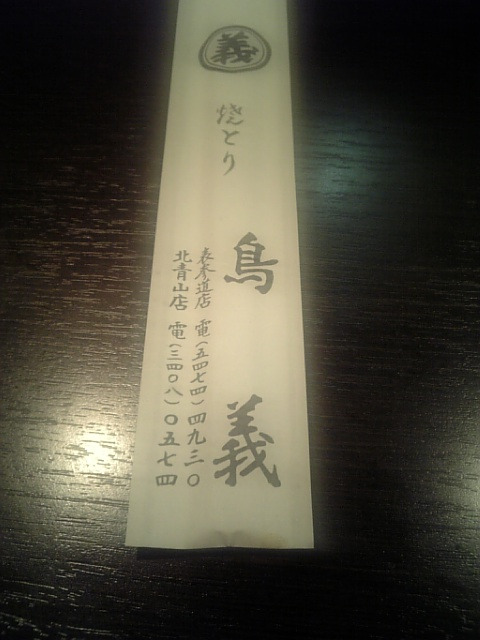 義
焼とり
鳥義
表参道店 電(五四七四)四九三〇
北青山店 電(三四〇八)〇五七四